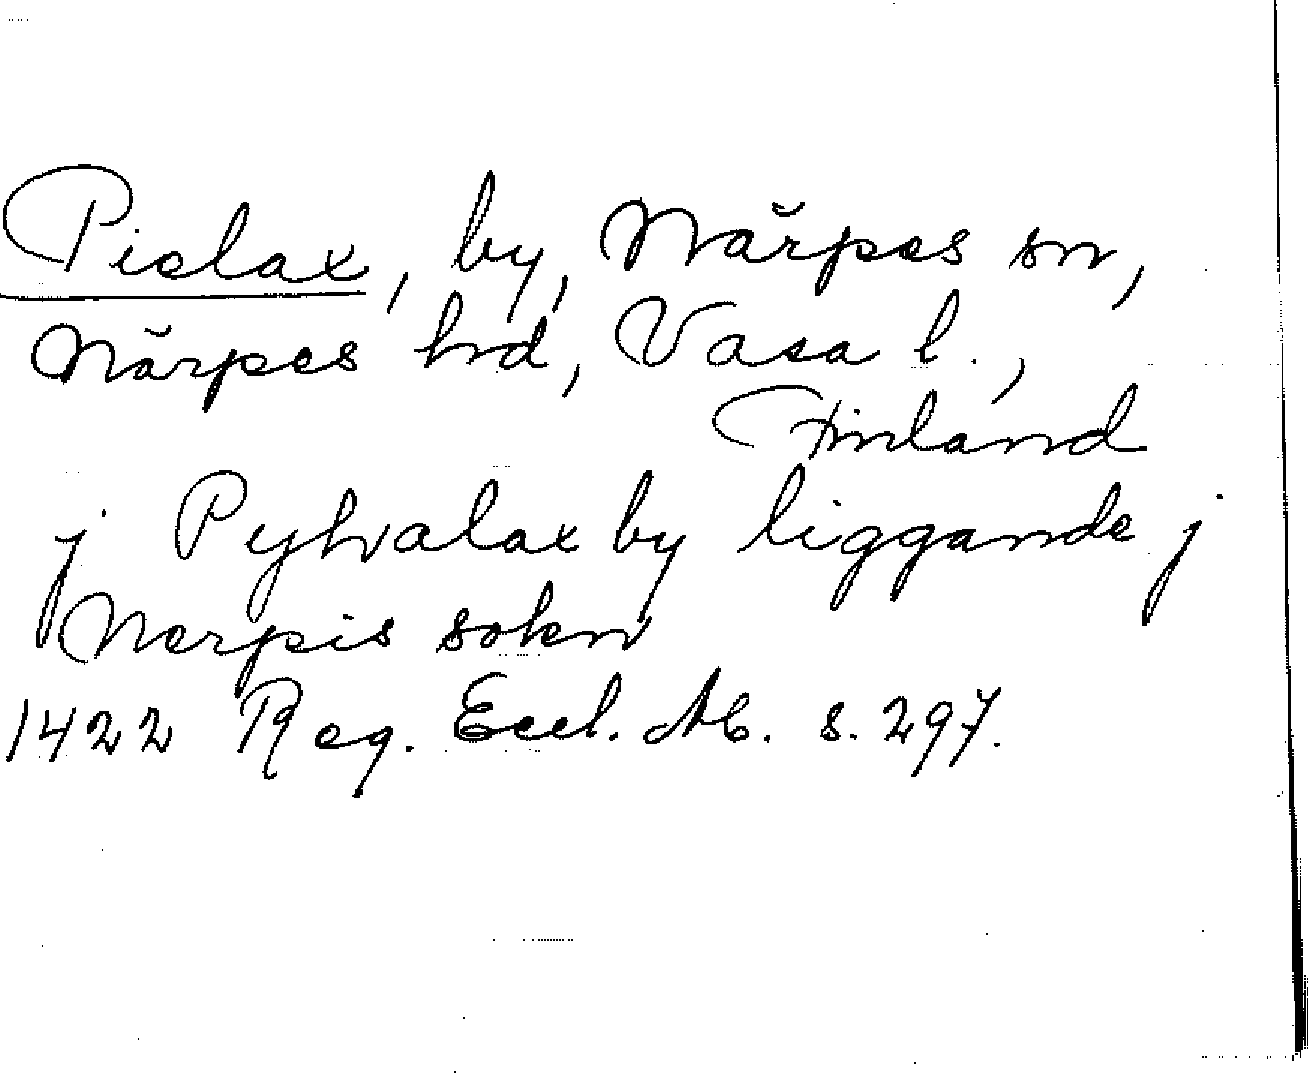 Pielax, by, Närpes sn,
Närpes hd, Vasa l.,
Finland
j Pyhvalax by liggande j
Nerpis sokn
1422 Reg. Eccl. Ab. s. 297.